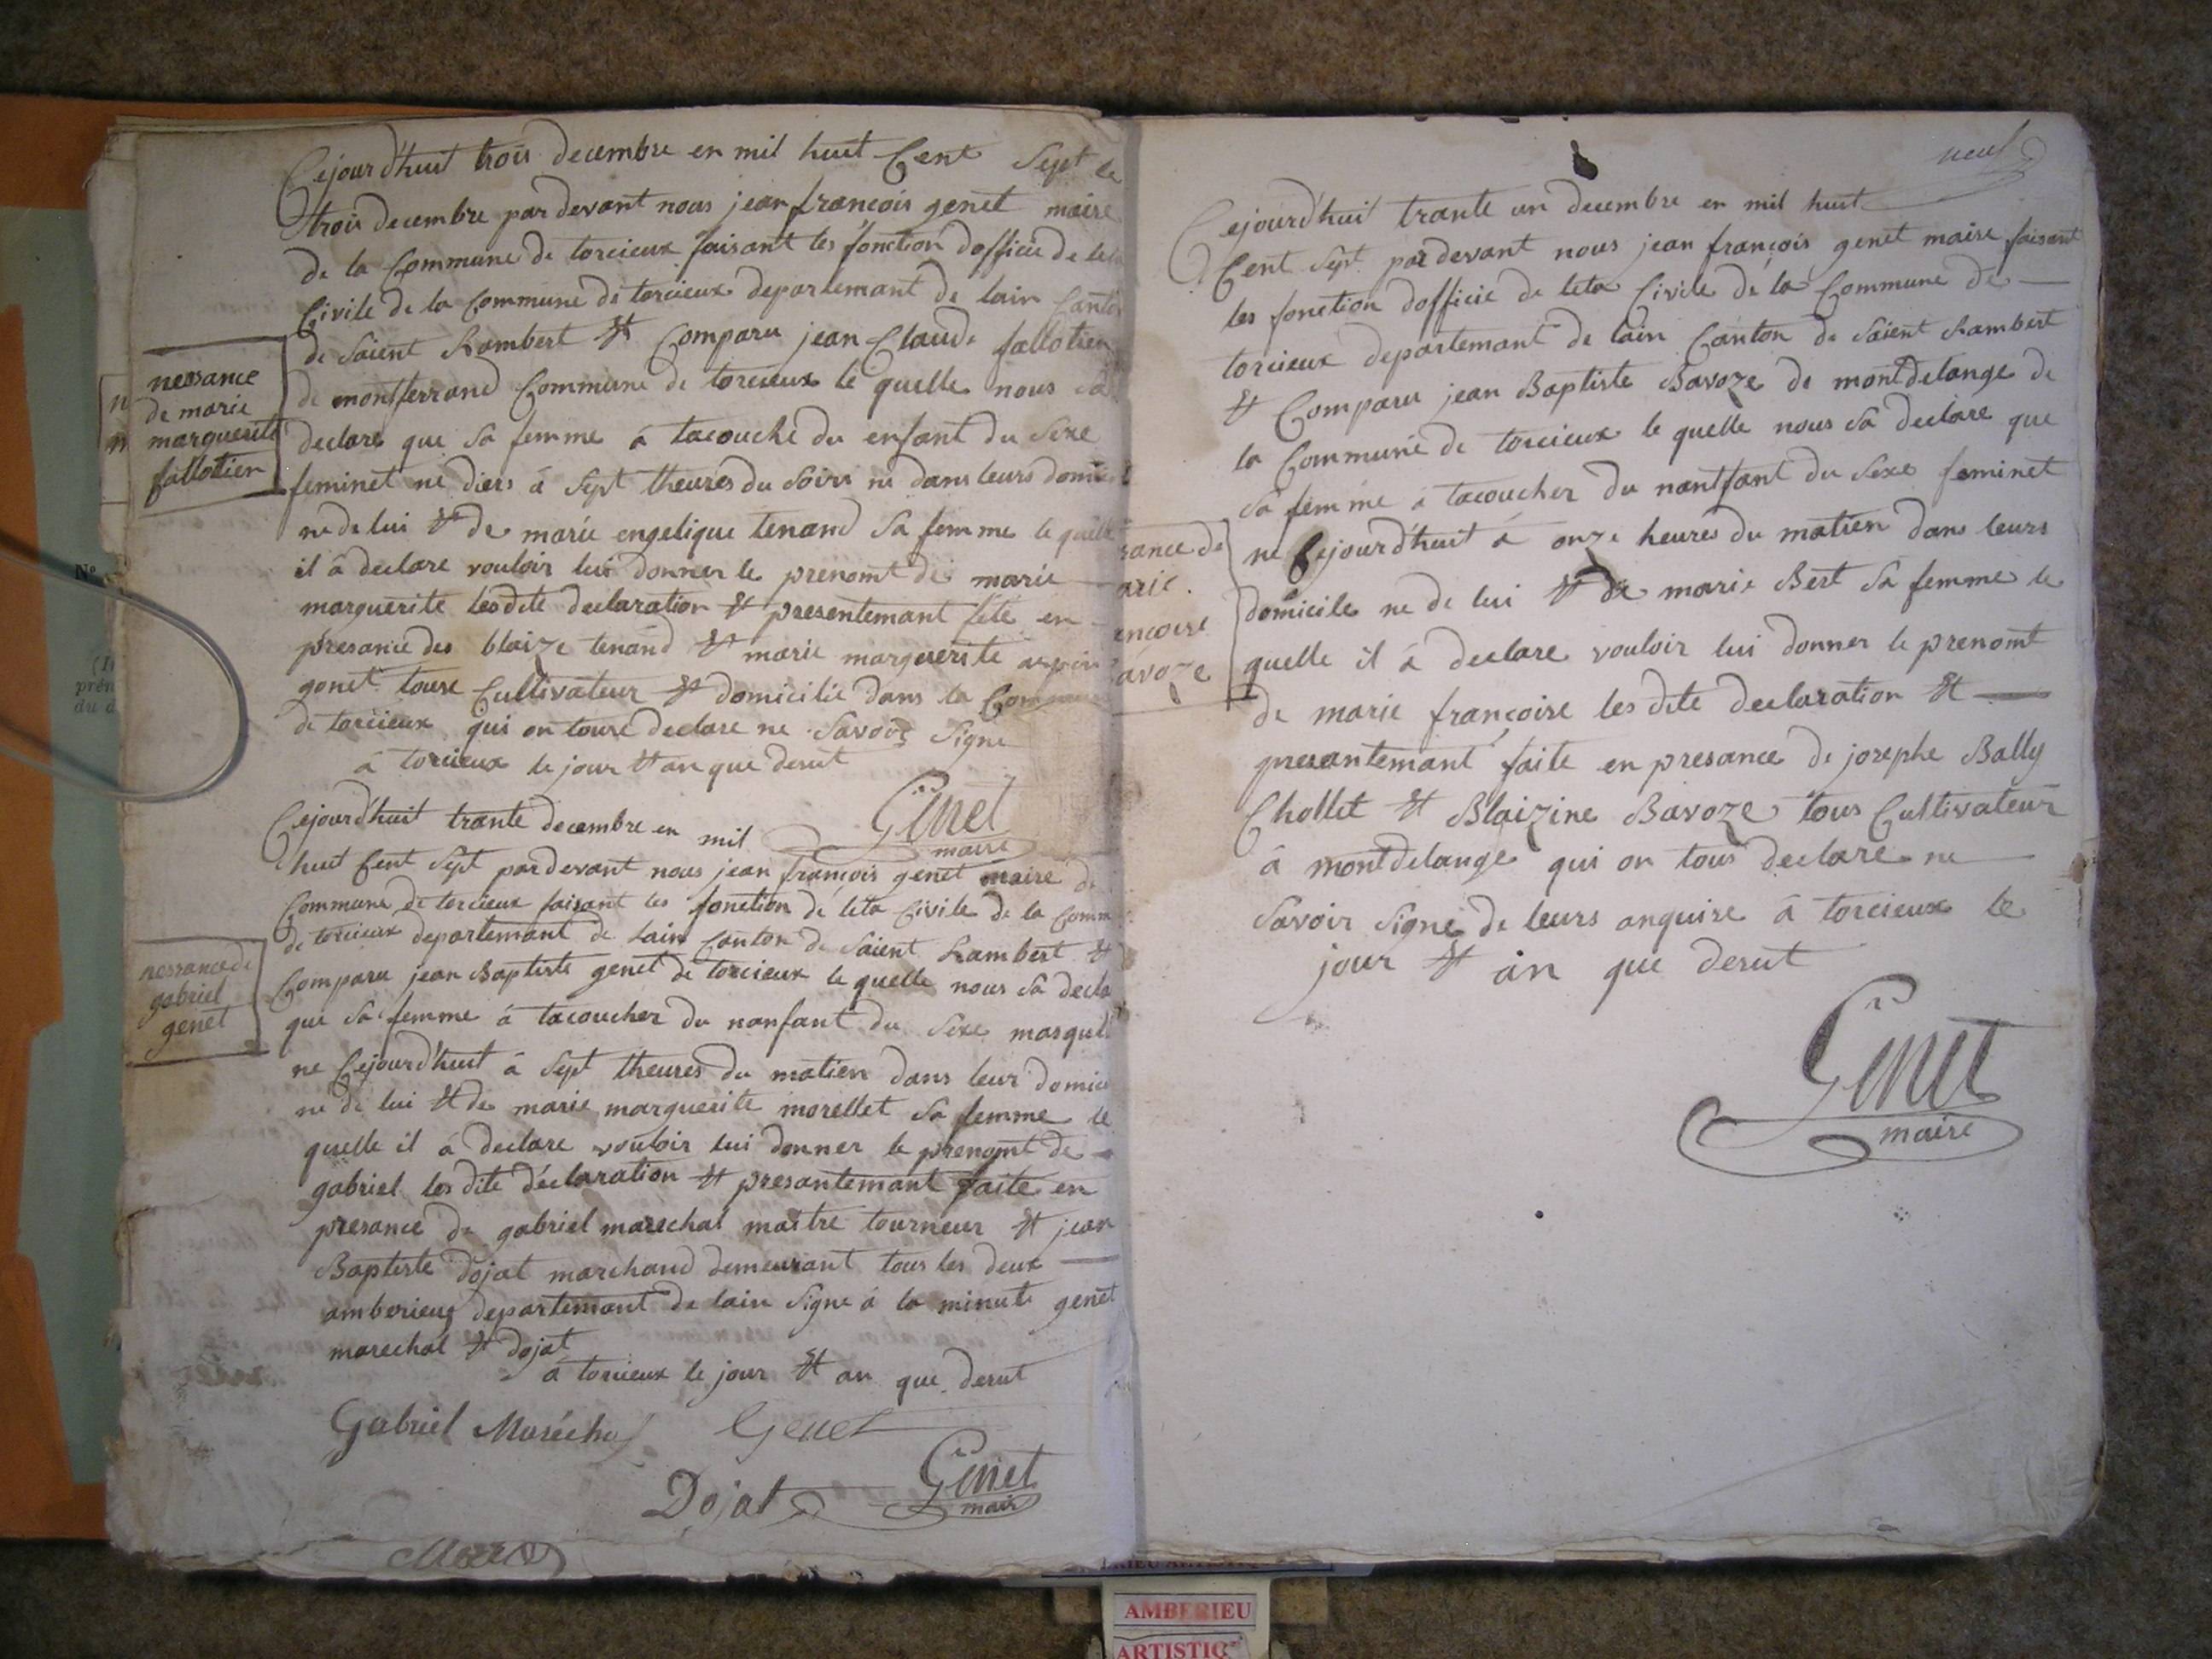 Cejourd'huit trois decembre en mil huit Cent Sept le
trois decembre par devant nous jean françois genet maire
de la Commune de torcieux faisant les fonction dofficie de leta
Civile de la Commune de torcieux departemant de lain Canton
de Saient Rambert Et Comparu jean Claude fallotien
de montferrand Commune de torcieux le quelle nous sa
declare que sa femme à tacouche du enfant du Sexe
feminet ne diers à Sept theures du Soirs ne dans leurs domicil
ne de lui Et de marie engelique tenand sa femme le quelle
il à declare vouloir lui donner le prenomt de marie
marguerite les dite declaration Et presentemant fete en
presance des blaize tenand Et marie marguerite
gonet touse Cultivateur Et domicilie dans la Commune
de torcieux qui on touse declare ne Savoir Signe
à torcieux le jour Et an que derut
Genet
maire
nessance
de marie
marguerite
fallotien
Cejourd'huit trante decembre en mil
huit Cent Sept par devant nous jean françois genet maire de
Commune de torcieux faisant les fonction de leta Civile de la Comm
de torcieux departemant de lain Canton de Saient Rambert Et
Comparu jean Baptiste genet de torcieux le quelle nous sa decla
que sa femme à tacoucher du nanfant du Sexe masquli
ne Cejourd'huit à Sept theures du matien dans leur domici
ne de lui Et de marie marguerite morellet sa femme le
quelle il à declare vouloir lui donner le prenomt de
gabriel les dite déclaration Et presantemant faite en
presance de gabriel marechal maitre tourneur Et jean
Baptiste dojat marchand demeurant tous les deux
amberieux departemant de lain Signe à la minute genet
marechal Et dojat
à torcieux le jour Et an que derut
Gabriel Maréchal Genet
Dojat Genet
mair
nessance de
gabriel
genet
neuf
Cejourd'huit trante un decembre en mil huit
Cent Sept par devant nous jean françois genet maire faisant
les fonction dofficie de leta Civile de la Commune de
torcieux departemant de lain Canton de Saient Rambert
Et Comparu jean Baptiste Bavoze de montdelange de
la Commune de torcieux le quelle nous sa declare que
sa femme à tacoucher du nantfant du Sexe feminet
ne Cejourd'huit à onze heures du matien dans leurs
domicile ne de lui Et de marie Bert sa femme le
quelle il à declare vouloir lui donner le prenomt
de marie françoise les dite declaration Et
presantemant faite en presance de josephe Bally
Chollet Et Blaizine Bavoze tous Cultivateur
à montdelange qui on tous declare ne
Savoir Signe de leurs anquise à torcieux le
jour Et an que derut
Genet
maire
sance de
arie
ancoise
avoze
AMBERIEU
ARTISTIQ